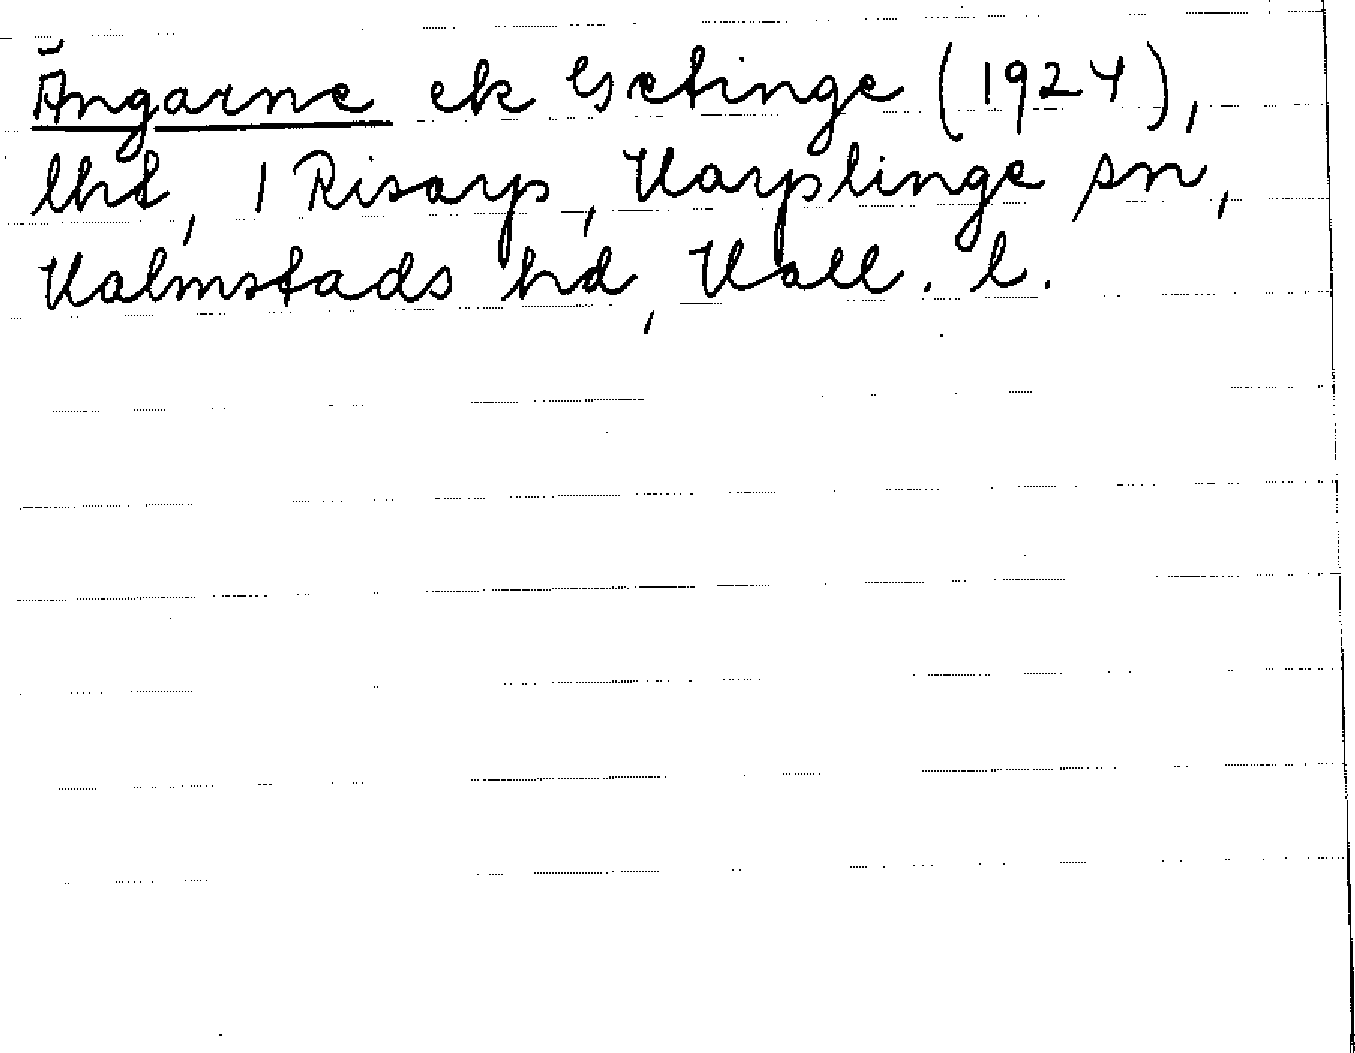 Ängarne ek Getinge (1924),
lht, 1 Risarp, Harplinge sn,
Halmstads hd, Hall. l.